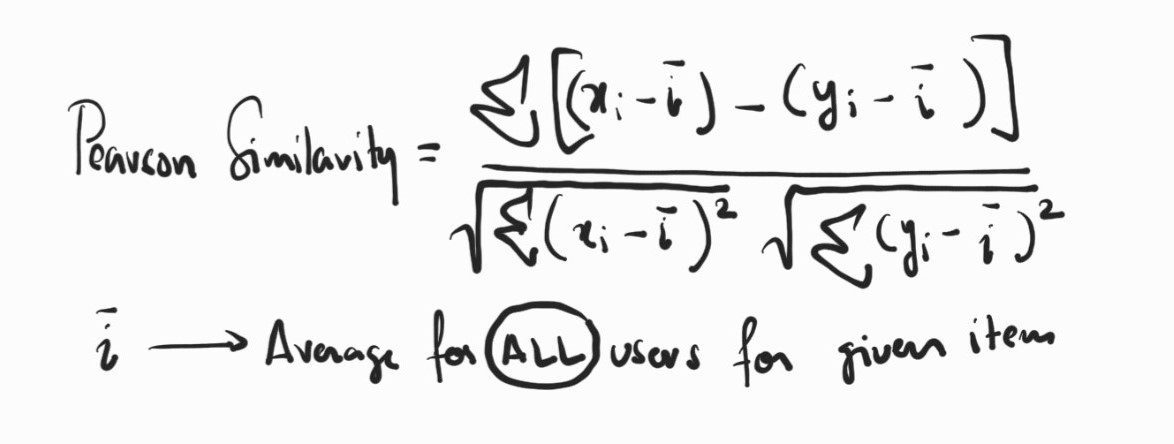 Pearson Similarity = Σ[(xᵢ - ī) - (yᵢ - ī)] / √Σ(xᵢ - ī)² √Σ(yᵢ - ī)²
ī → Average for ALL users for given item